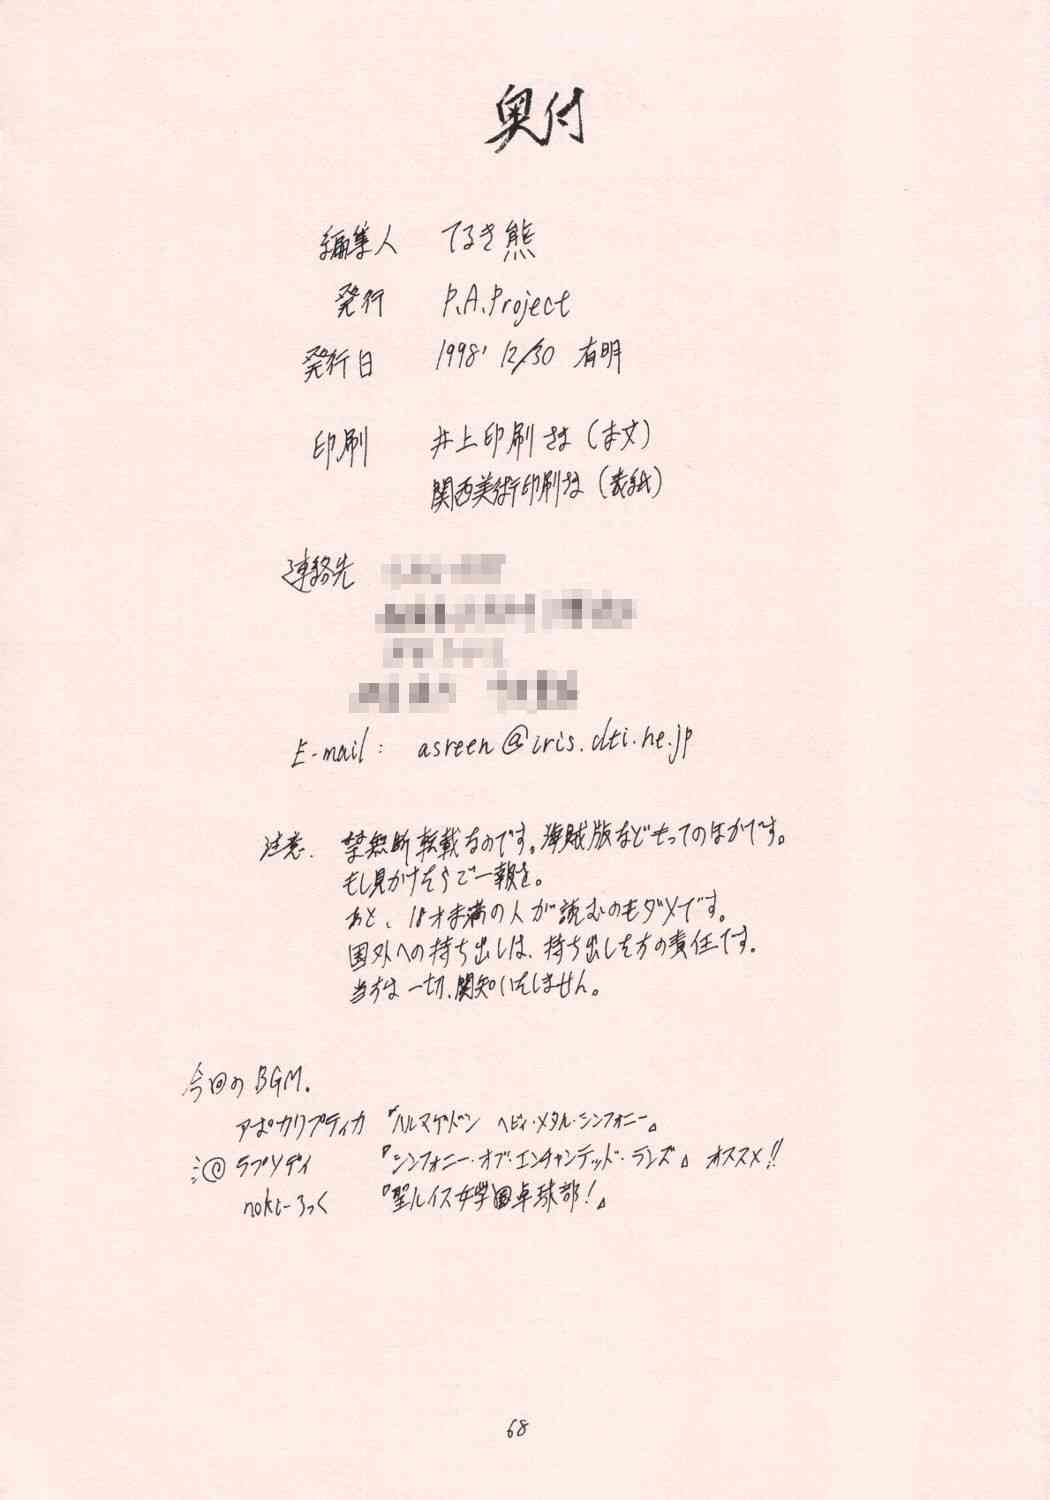 奥付
編集人 てるき熊
発行 P.A.Project
発行日 1998' 12/30 有明
印刷 井上印刷さま(本文)
関西美術印刷さま(表紙)
連絡先
E-mail: asreen@iris.dti.ne.jp
注意. 禁無断転載なのです。海賊版などもってのほかです。
もし見かけたらご一報を。
あと、18才未満の人が読むのもダメです。
国外への持ち出しは、持ち出した方の責任です。
当方は一切、関知いたしません。
今回のBGM.
アポカリプティカ 『ハルマゲドン ヘビィ・メタル・シンフォニー』
ラプソディ 『シンフォニー・オブ・エンチャンテッド・ランズ』 オススメ!!
『聖ルイス女学園卓球部!』
68